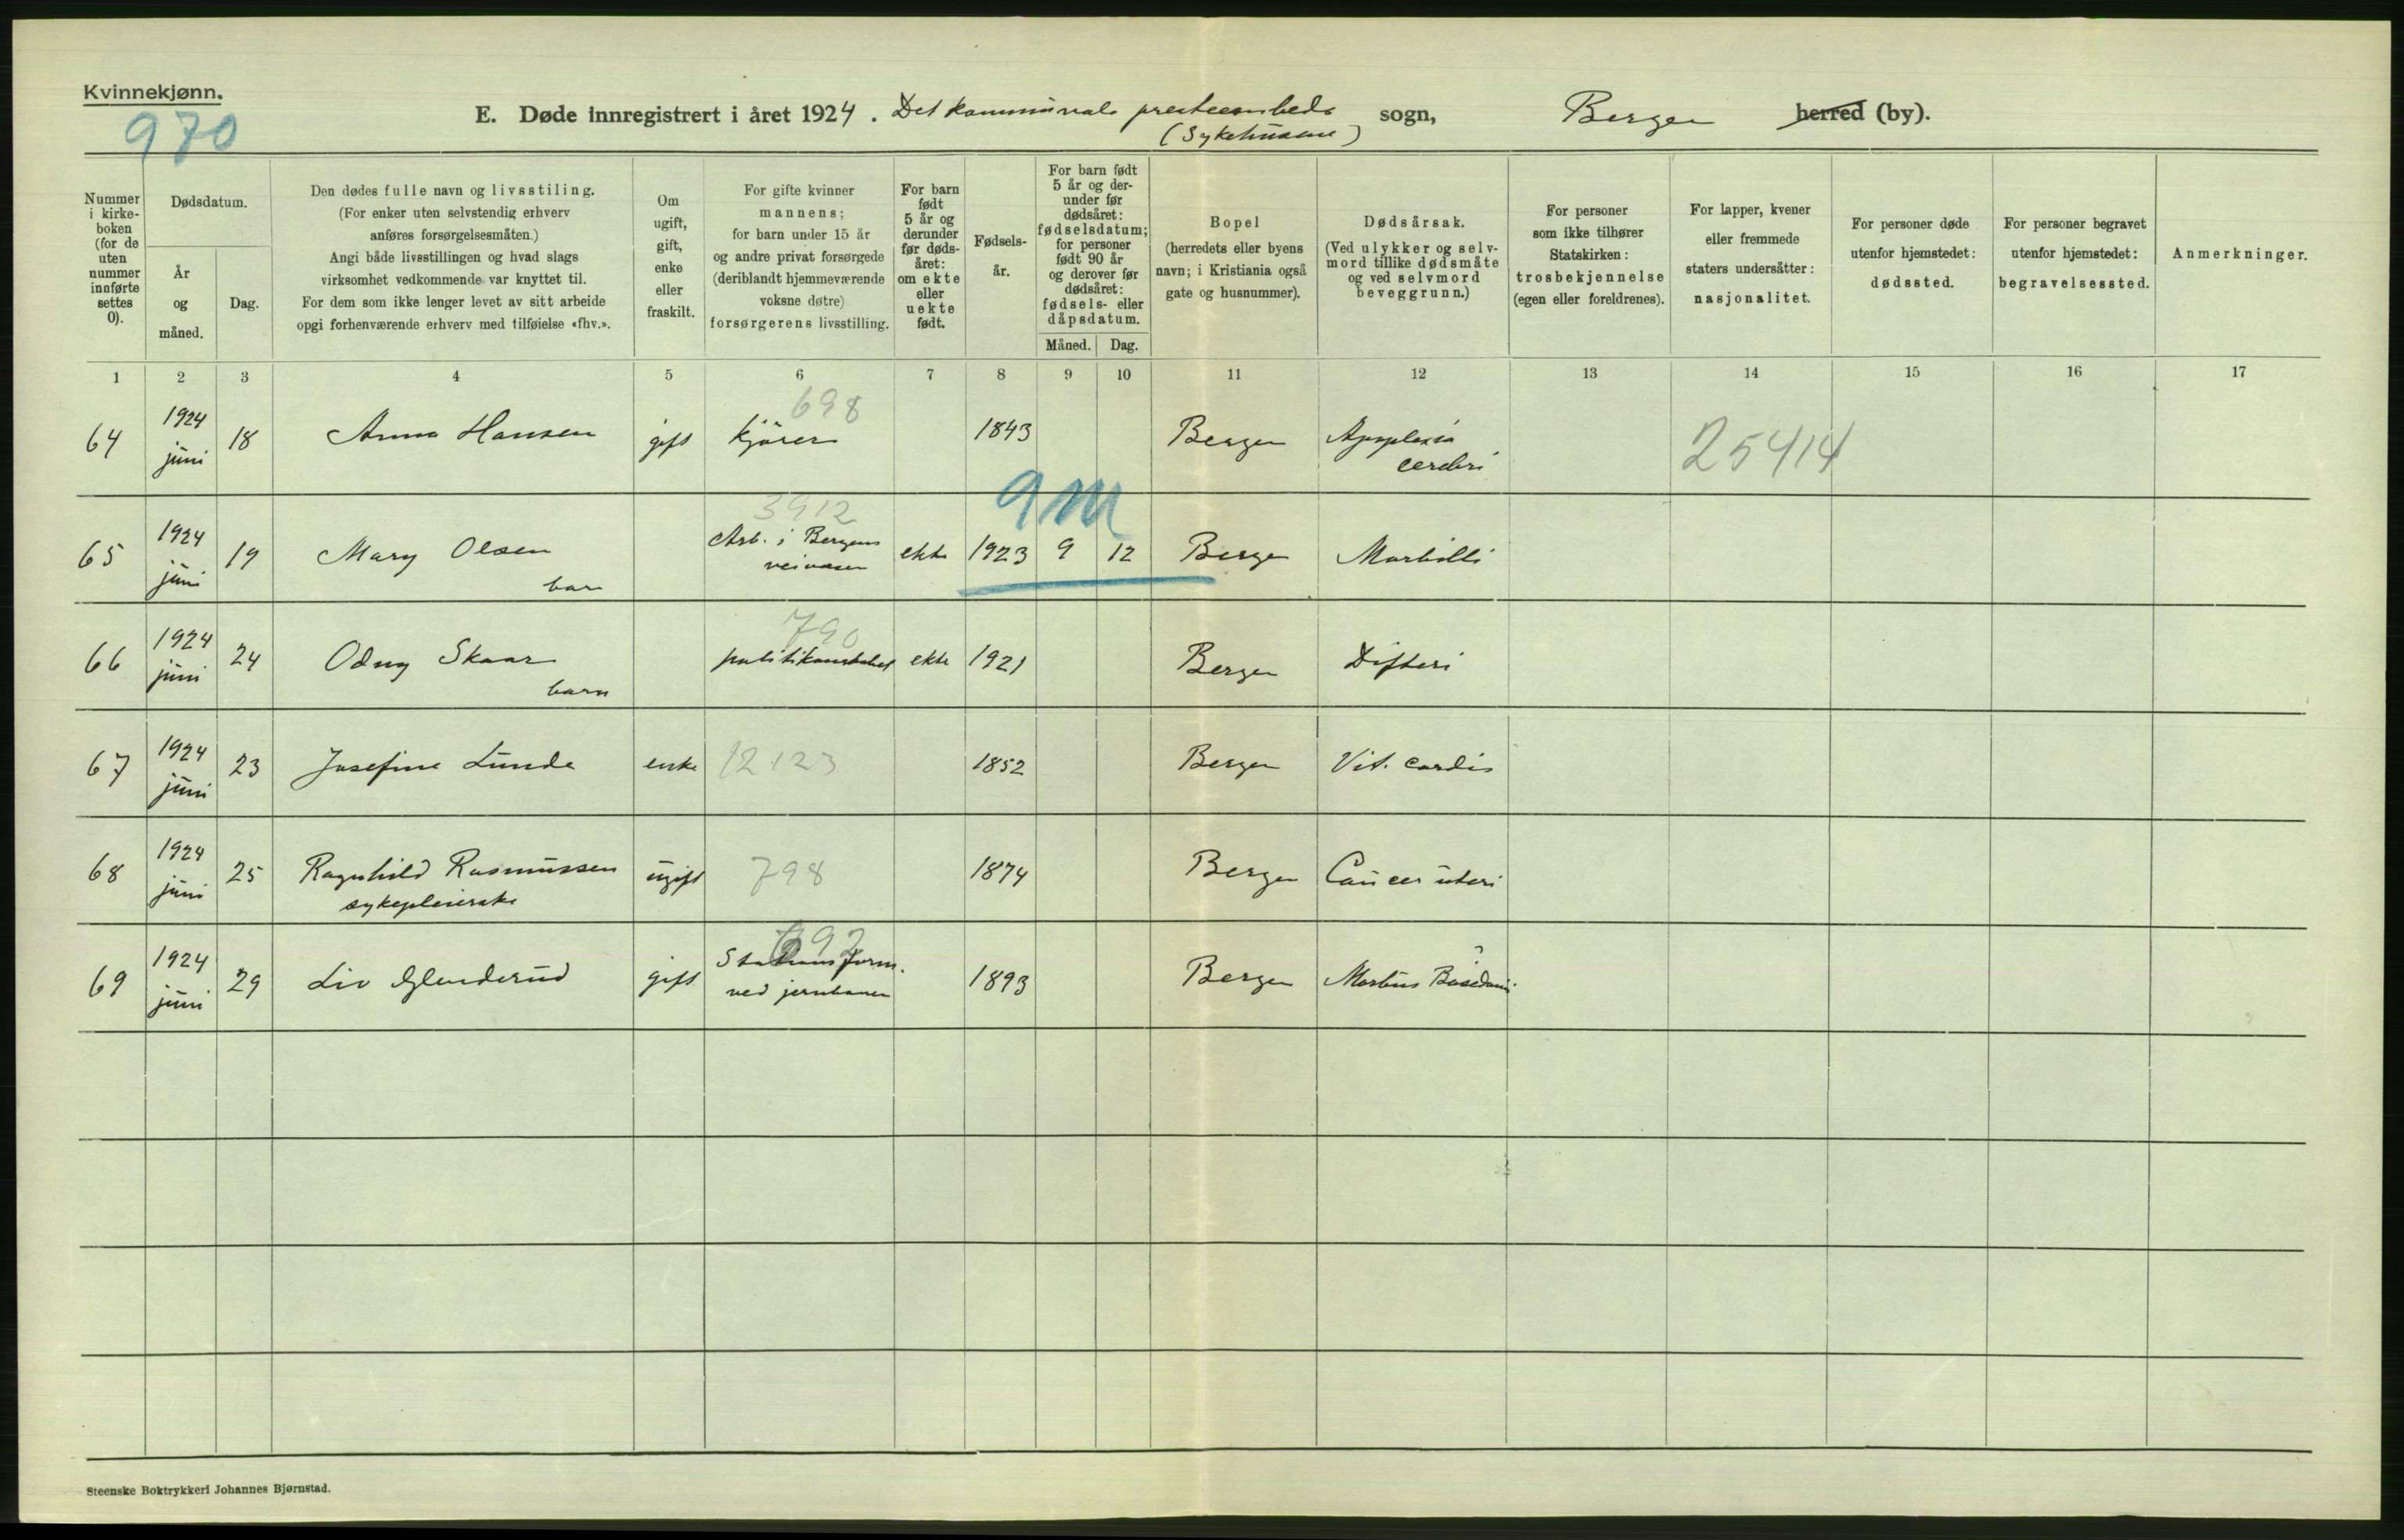 Kvinnekjønn.
970
E. Døde innregistrert i året 1924. Det kommunale presteembede sogn, Bergen herred (by).
(Sykehusene)
Nummer i kirke-boken (for de uten nummer innførte settes 0).
Dødsdatum.
År og måned.
Dag.
Den dødes fulle navn og livsstiling.
(For enker uten selvstendig erhverv
anføres forsørgelsesmåten.)
Angi både livsstillingen og hvad slags
virksomhet vedkommende var knyttet til.
For dem som ikke lenger levet av sitt arbeide
opgi forhenværende erhverv med tilføielse «fhv.».
Om ugift, gift, enke eller fraskilt.
For gifte kvinner
mannens;
for barn under 15 år
og andre privat forsørgede
(deriblandt hjemmeværende
voksne døtre)
forsørgerens livsstilling.
For barn født 5 år og derunder før døds-året: om ekte eller uekte født.
Fødsels-år.
For barn født 5 år og der-under før dødsåret: fødselsdatum; for personer født 90 år og derover før dødsåret: fødsels- eller dåpsdatum.
Måned. Dag.
Bopel
(herredets eller byens
navn; i Kristiania også
gate og husnummer).
Dødsårsak.
(Ved ulykker og selv-
mord tillike dødsmåte
og ved selvmord
beveggrunn.)
For personer
som ikke tilhører
Statskirken:
trosbekjennelse
(egen eller foreldrenes).
For lapper, kvener
eller fremmede
staters undersåtter:
nasjonalitet.
For personer døde
utenfor hjemstedet:
dødssted.
For personer begravet
utenfor hjemstedet:
begravelsessted.
Anmerkninger.
1 2 3 4 5 6 7 8 9 10 11 12 13 14 15 16 17
698
64 1924 juni 18 Anna Hansen gift kjører 1843 Bergen Apoplexia cerebri 25414
9 M
3912
65 1924 juni 19 Mary Olsen barn Arb. i Bergens veivæsen ekte 1923 9 12 Bergen Morbilli
790
66 1924 juni 24 Odny Skaar barn politikonstabel ekte 1921 Bergen Difteri
67 1924 juni 23 Josefine Lunde enke 12123 1852 Bergen Vit. cordis
68 1924 juni 25 Ragnhild Rasmussen sykepleierske ugift 798 1874 Bergen Cancer uteri
692
69 1924 juni 29 Liv Glenderud gift Stationsform. ved jernbanen 1893 Bergen Morbus Basedowi
Steenske Boktrykkeri Johannes Bjørnstad.